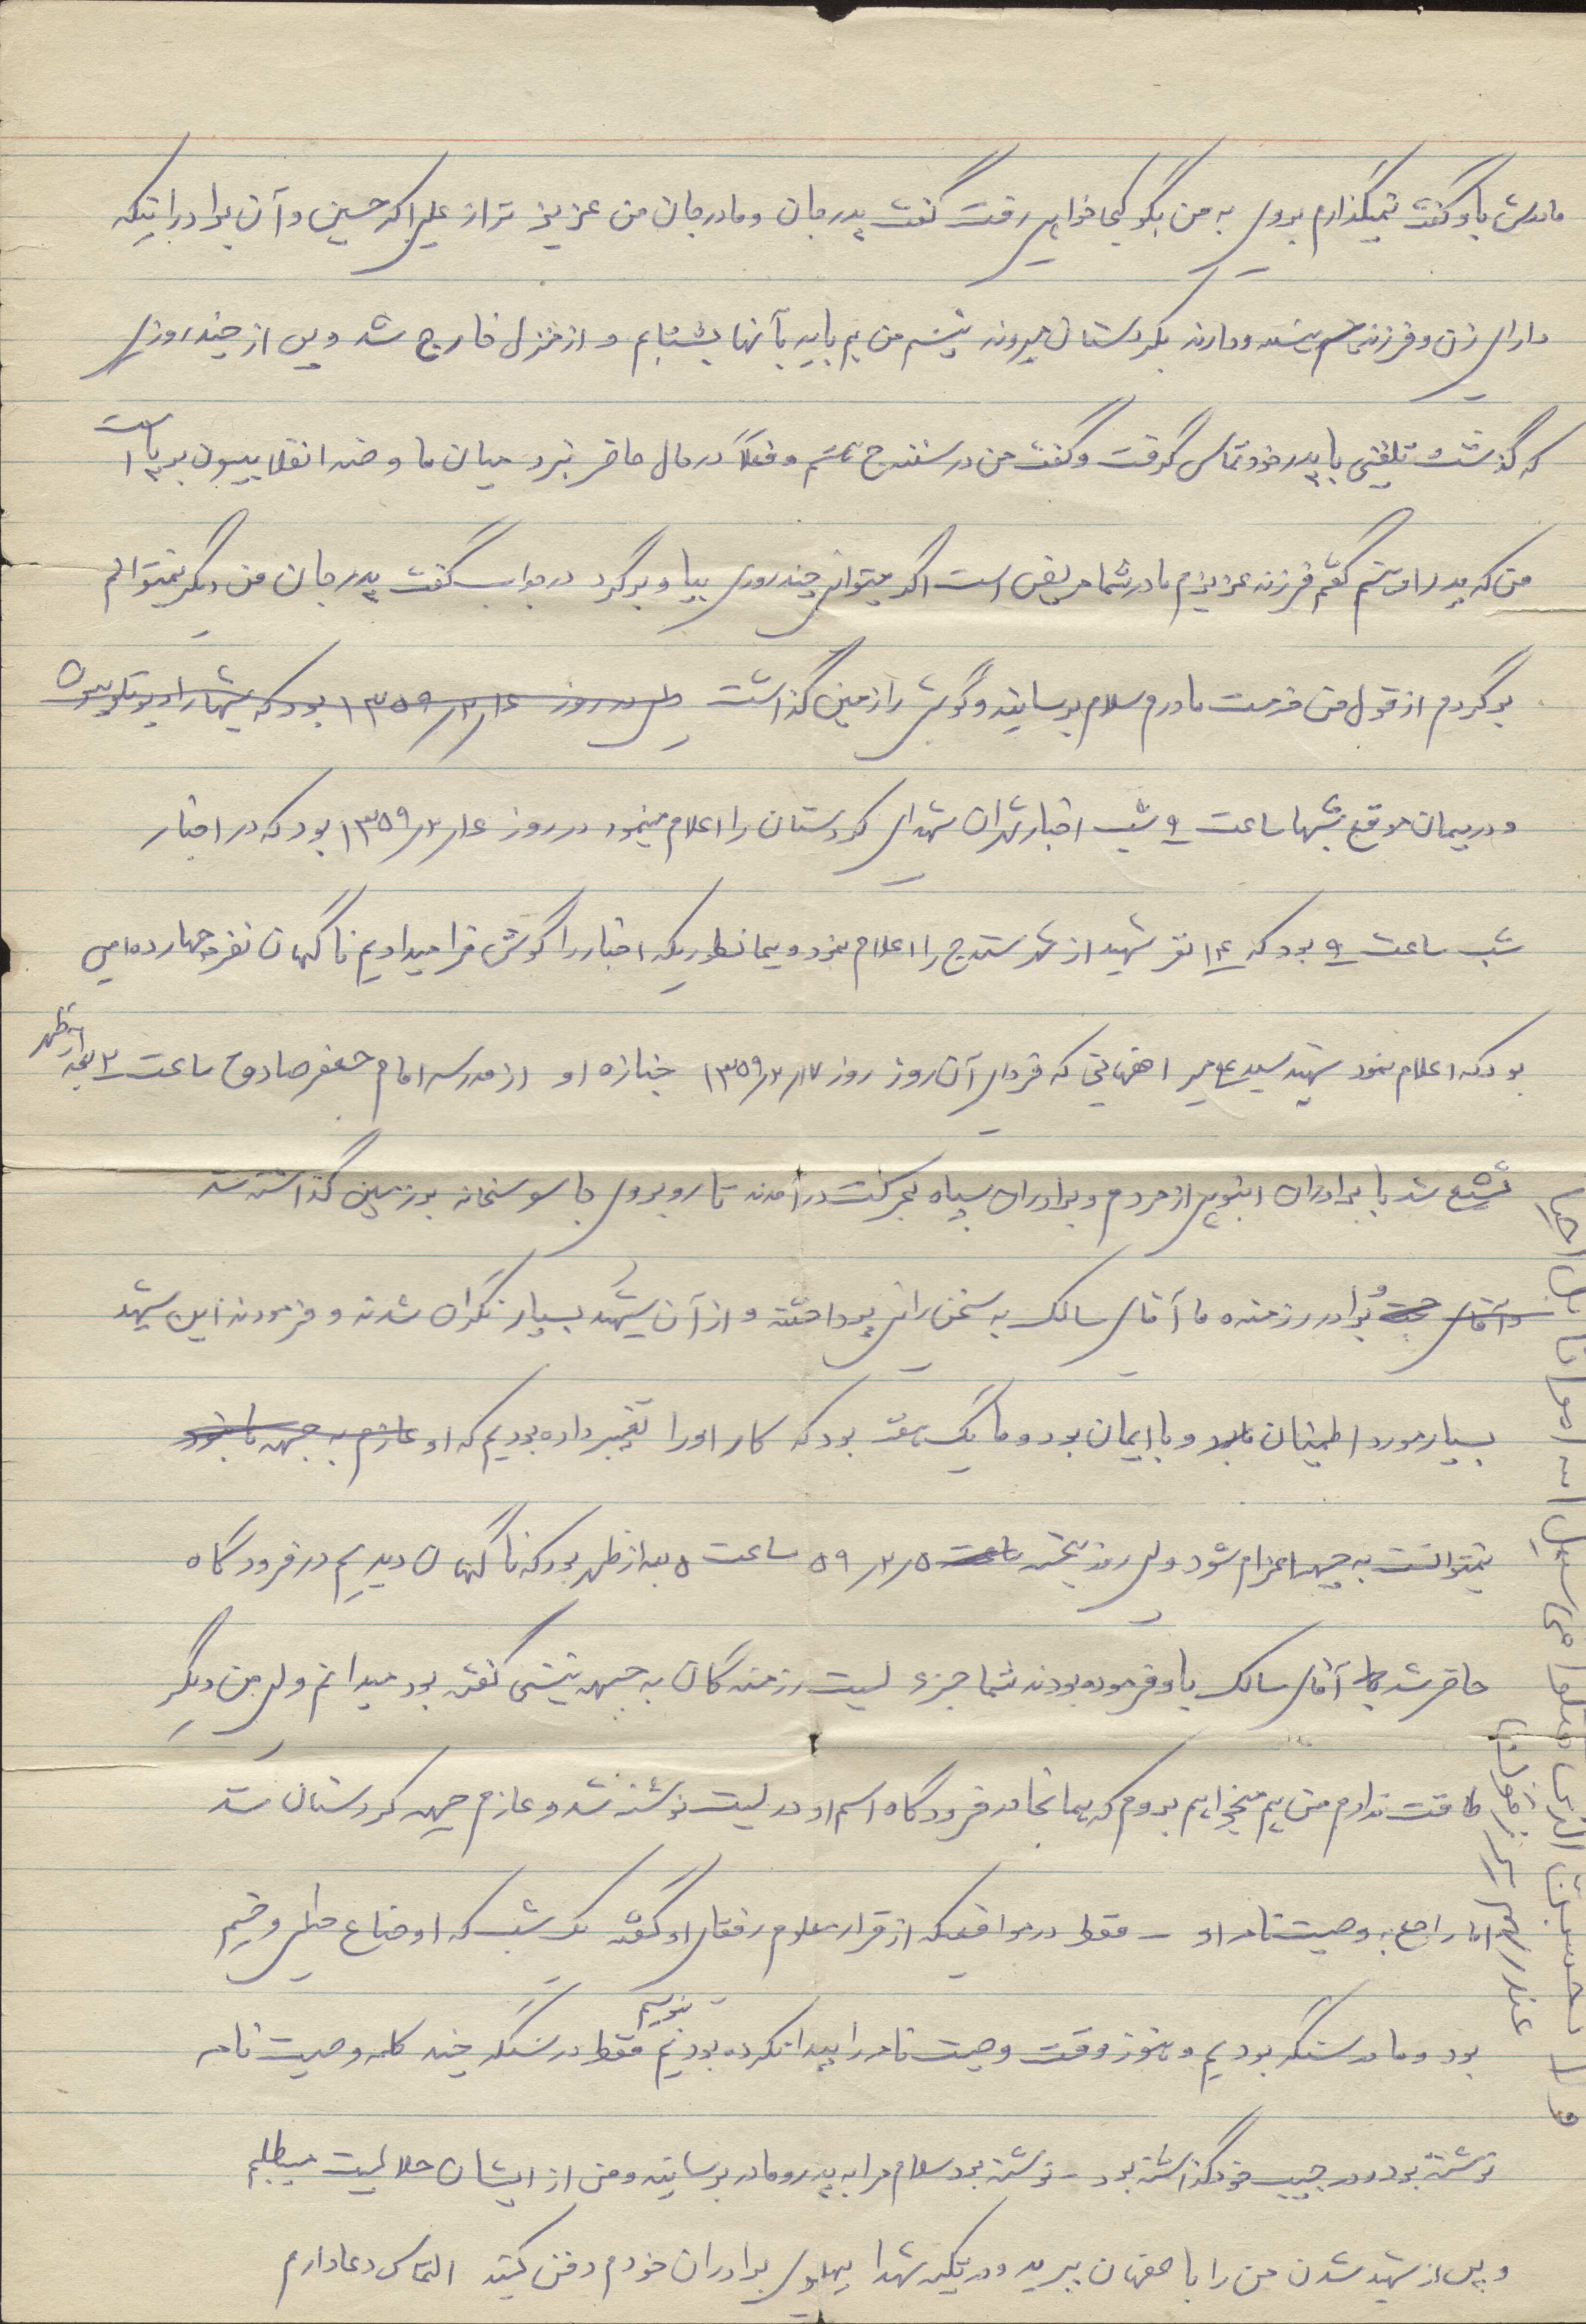 مادرش باو گفت نمیگذارم بروی به من بگو کجا خواهی رفت گفت پدرجان و مادرجان من عزیز تر از علی اکبر حسین و آن برادرانیکه
دارای زن و فرزند هستند و دارند بکردستان میروند نیستم من هم باید بآنها بشتابم و از منزل خارج شد و پس از چند روزی
که گذشت تلفنی با پدر خود تماس گرفت و گفت من در سنندج هستم و فعلاً در حال حاضر نبرد میان ما و ضد انقلابییون برپا است
من که پدر او هستم گفتم فرزند عزیزم مادر شما مریض است اگر میتوانی چند روزی بیا و برگرد در جواب گفت پدرجان من دیگر نمیتوانم
برگردم از قول من خدمت مادرم سلام برسانید و گوشی را زمین گذاشت ولی در روز ۱۶ر۲ر۱۳۵۹ بود که شبها رادیو تلویزیون
و در همان موقع شبها ساعت ۹ شب اخبار تهران شهدای کردستان را اعلام مینمود در روز ۱۶ر۲ر۱۳۵۹ بود که در اخبار
شب ساعت ۹ بود که ۱۴ نفر شهید از شهر سنندج را اعلام نمود و همانطوریکه اخبار را گوش فرا میدادیم ناگهان نفر چهاردهمی
بود که اعلام نمود شهید سید امیر اصفهانی که فردای آن روز روز ۱۷ر۲ر۱۳۵۹ جنازه او از مدرسه امام جعفر صادق ساعت ۲ بعد از ظهر
تشیع شد با برادران انبوهی از مردم و برادران سپاه بحرکت درآمدند تا روبروی جاسوسخانه بر زمین گذاشته شد
و آقای برادر رزمنده ما آقای سالک به سخن رانی پرداختند و از آن شهید بسیار نگران شدند و فرمودند این شهید
بسیار مورد اطمینان ما بود و با ایمان بود و ما یک هفته بود که کار او را تغییر داده بودیم که او عازم به جبهه
نمیتوانست به جبهه اعزام شود ولی روز پنجشنبه ساعت ۵ر۲ر۵۹ ساعت ۵ بعد از ظهر بود که ناگهان دیدیم در فرودگاه
حاضر شد آقای سالک باو فرموده بودند شما جزء لیست رزمندگان به جبهه نیستی گفته بود میدانم ولی من دیگر
طاقت ندارم من هم میخواهم بروم که همانجا در فرودگاه اسم او در لیست نوشته شد و عازم جبهه کردستان شد
اما راجع به وصیت نامه او – فقط در مواقعیکه از قرار معلوم رفقای او گفته یک شب که اوضاع خیلی وخیم
بود و ما در سنگر بودیم و هنوز وقت وصیت نامه را پیدا نکرده بودیم بنویسیم فقط در سنگر چند کلمه وصیت نامه
نوشته بود و در جیب خود گذاشته بود – نوشته بود سلام مرا به پدر و مادر برسانید و من از ایشان حلالیت میطلبم
و پس از شهید شدن من را باصفهان ببرید و در تکیه شهدا پهلوی برادران خودم دفن کنید التماس دعا دارم
و لا تحسبن الذین قتلوا فی سبیل الله امواتا بل احیاء
عند ربهم یرزقون